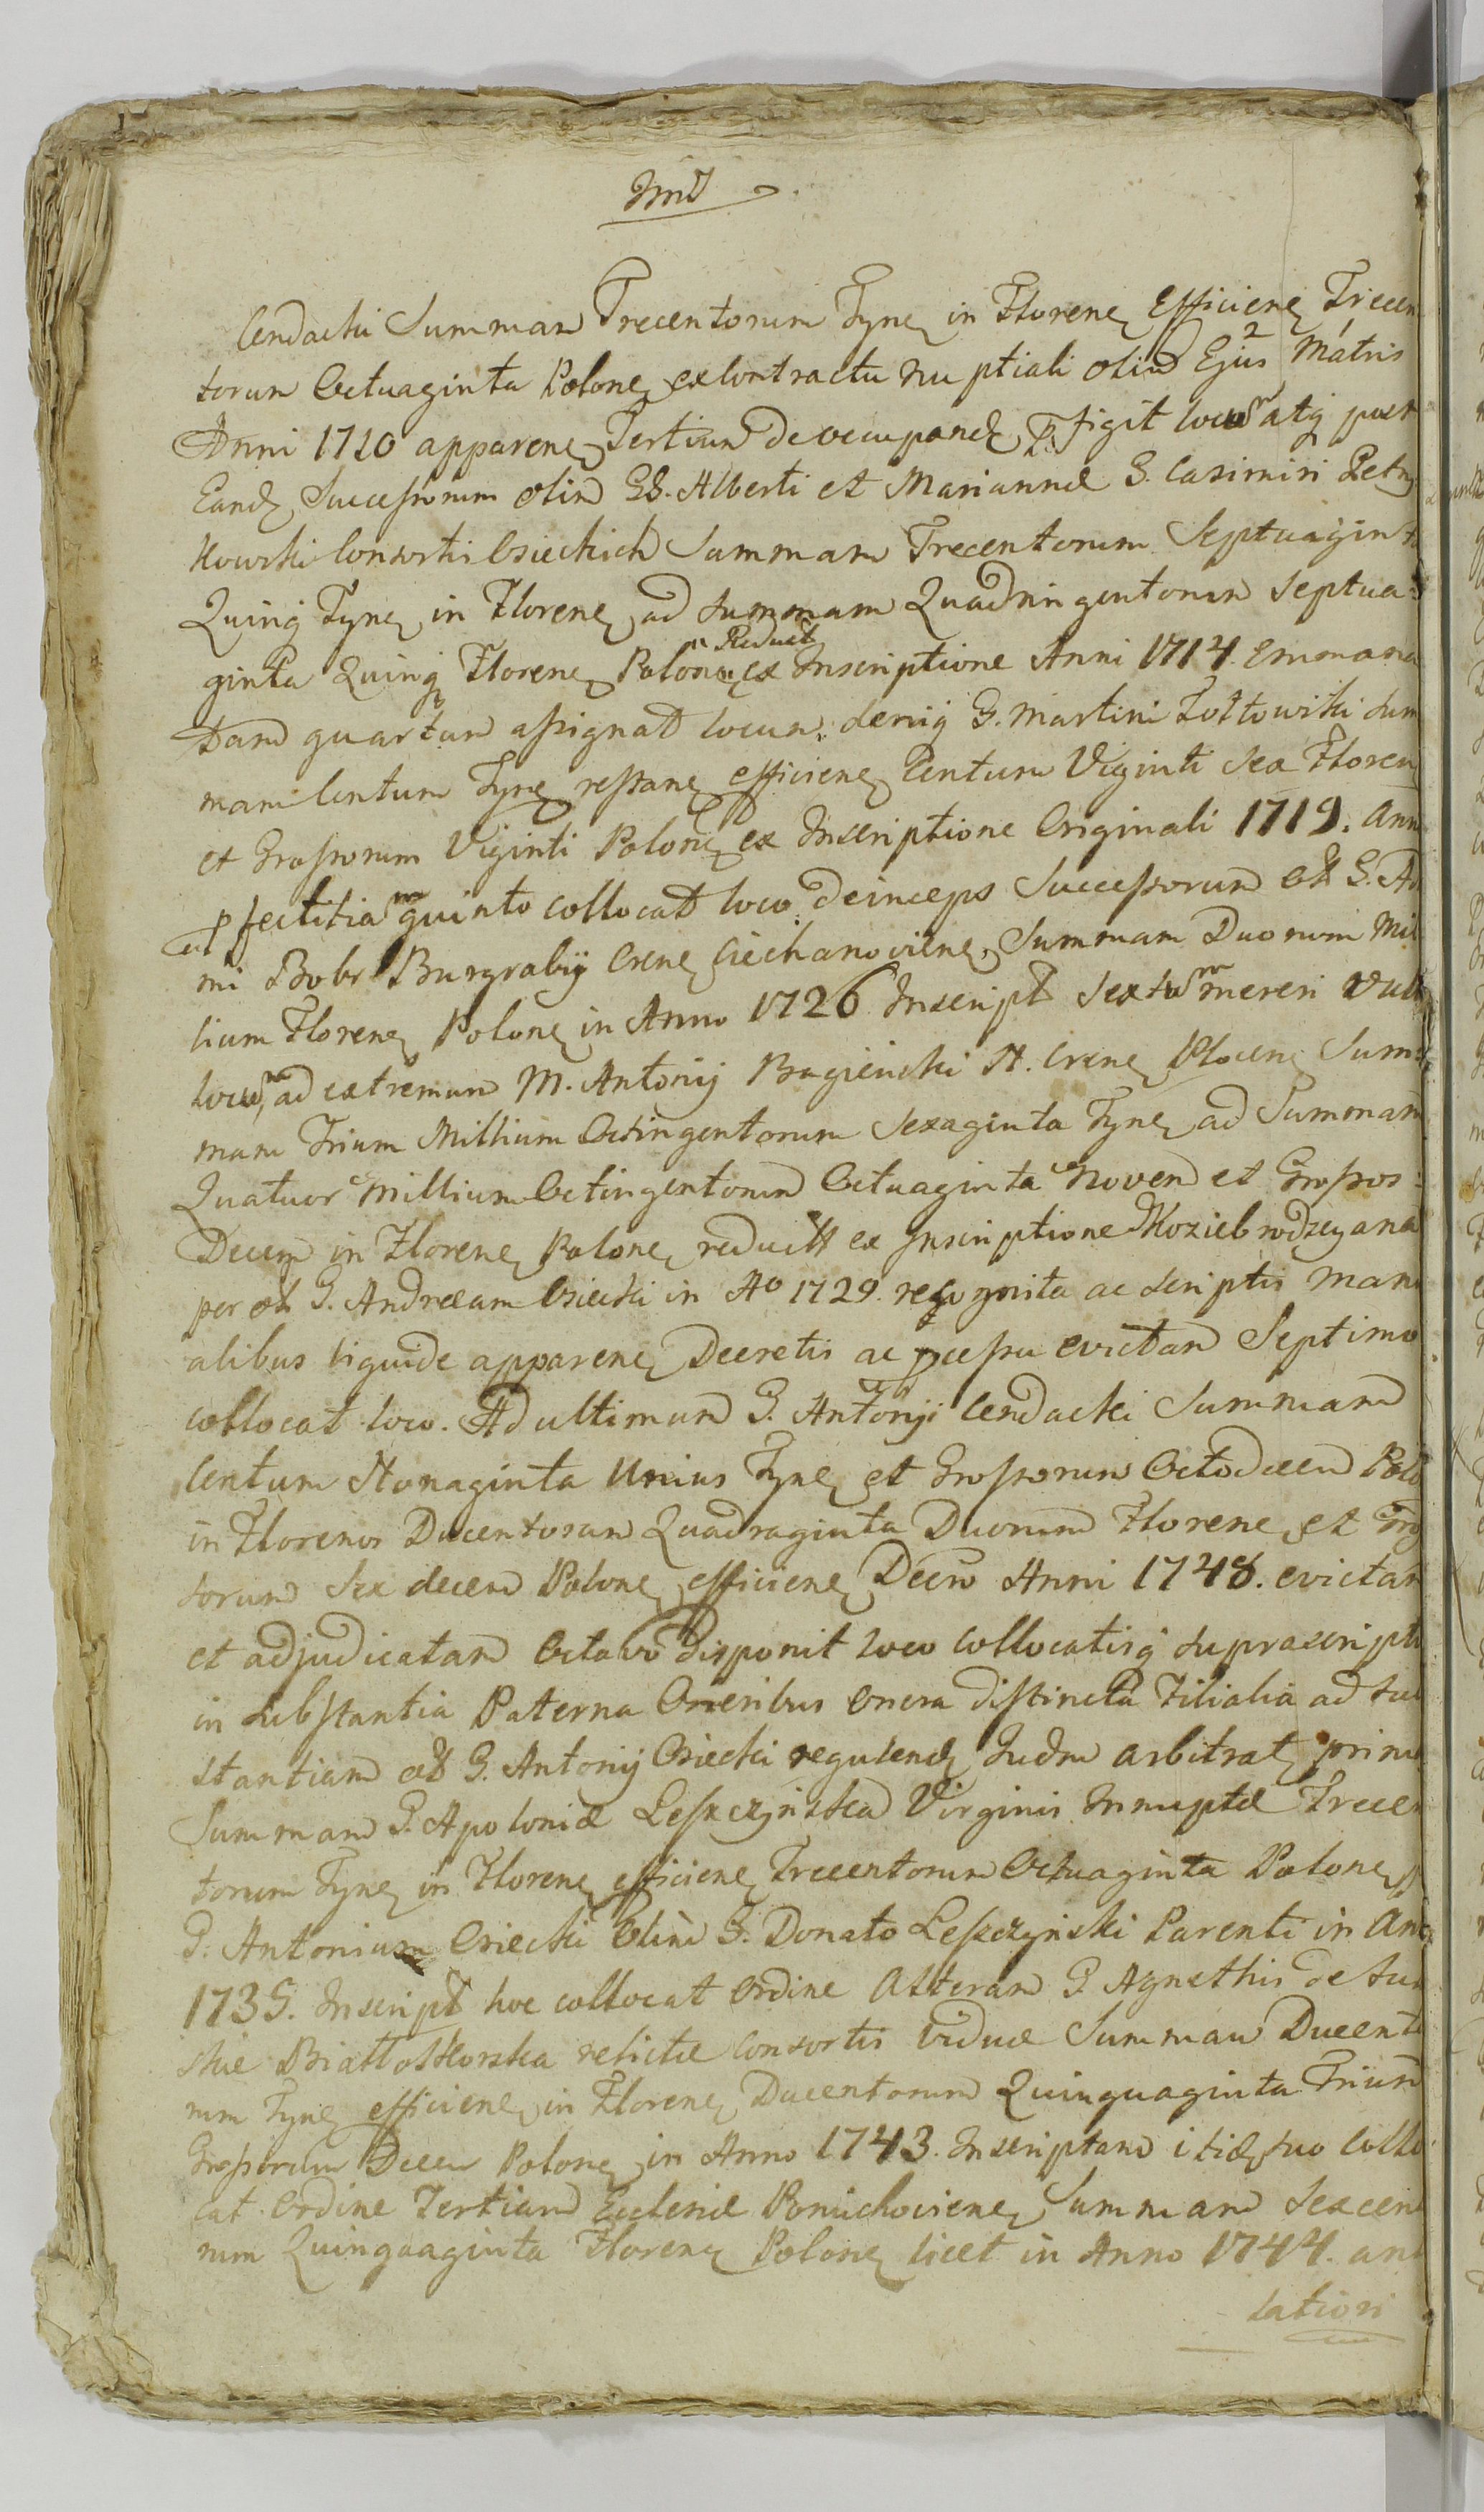 Cendacki Summam Trecentorum Tynẽ in Florenẽ Efficienẽ Trecen
torum Octuaginta Polonẽ ex Contractu Nuptiali olim Ejus Matris
Anni 1710 apparenẽ Tertium de occupand figit locum atq post
Eand Successorum olim GG. Alberti et Mariannæ G. Casimiri Petry
kowski Consortis Osieckich Summam Trecentorum Septuagint
Quinq Tynẽ in Florenẽ ad summam Quadringentorum Septua
ginta Quinq Florenẽ Polon Reduct ex Inscriptione Anni 1714. Emmana
tam quartum assignat locum. deniq G. Martini Żołtowski sum
mam Centum Tynẽ restanẽ efficienẽ Centum Viginti Sex Floren
et Grossorum Viginti Polonẽ ex Inscriptione Originali 1719. Ann
quinto collocat loco deinceps Successorum G. Ad
mi Bobr Burgrabij Crenẽ Ciechanovienẽ Summam Duorum Mil
lium Florenẽ Polonẽ in Anno 1726 Inscript Sextum mereri Vult
locum, ad extremum M. Antonij Bagieński N. Crenẽ Plocenẽ Sum
mam Trium Millium Octingentorum Sexaginta Tynẽ ad Summam
Quatuor Millium Octingentorum Octuaginta Novem et Grossos
Decem in Florenẽ Polonẽ reduct ex Inscriptione Koziebrodzcyana
per G. Andream Osiecki in Aº 1729. recognita ac scriptis Manu
alibus liquide apparenẽ Decretis ac pcessu evictam Septimo
collocat loco. Ad ultimum G. Antonji Cendacki Summam
Centum Nonaginta Unius Tynẽ et Grossorum Octodecem Polo
in Florenos Ducentorum Quadraginta Duorum Florenẽ et Gro
sorum Sex decem Polonẽ efficienẽ Decro Anni 1748. evictam
et adjudicatam Octavo disponit loco Collocatisq suprascripti
in substantia Paterna Oneribus onera distincta Filialia ad sub
stantiam G. Antonij Osiecki regulend Judm arbitrat, primo
Summam G. Apoloniæ Leszczyńska Virginis Innuptæ Trecen
torum Tynẽ in Florenẽ efficienẽ Trecentorum Octuaginta Polonẽ
G. Antonium Osiecki Olim G. Donato Leszczyński Parenti in An
1735. Inscript hoc collocat Ordine Alteram G. Agnethis de
skie Białłoskorska relictæ Consortis viduæ Summam Ducento
rum Tynẽ efficienẽ in Florenẽ Ducentorum Quinquaginta Trium
Grossorum Decem Polonẽ in Anno 1743. Inscriptam itid suo Collo
cat Ordine Tertiam Ecclesiæ Pomichovienẽ Summam Sexcen
rum Quinquaginta Florenẽ Polonẽ licet in Anno 1744. an
lationi